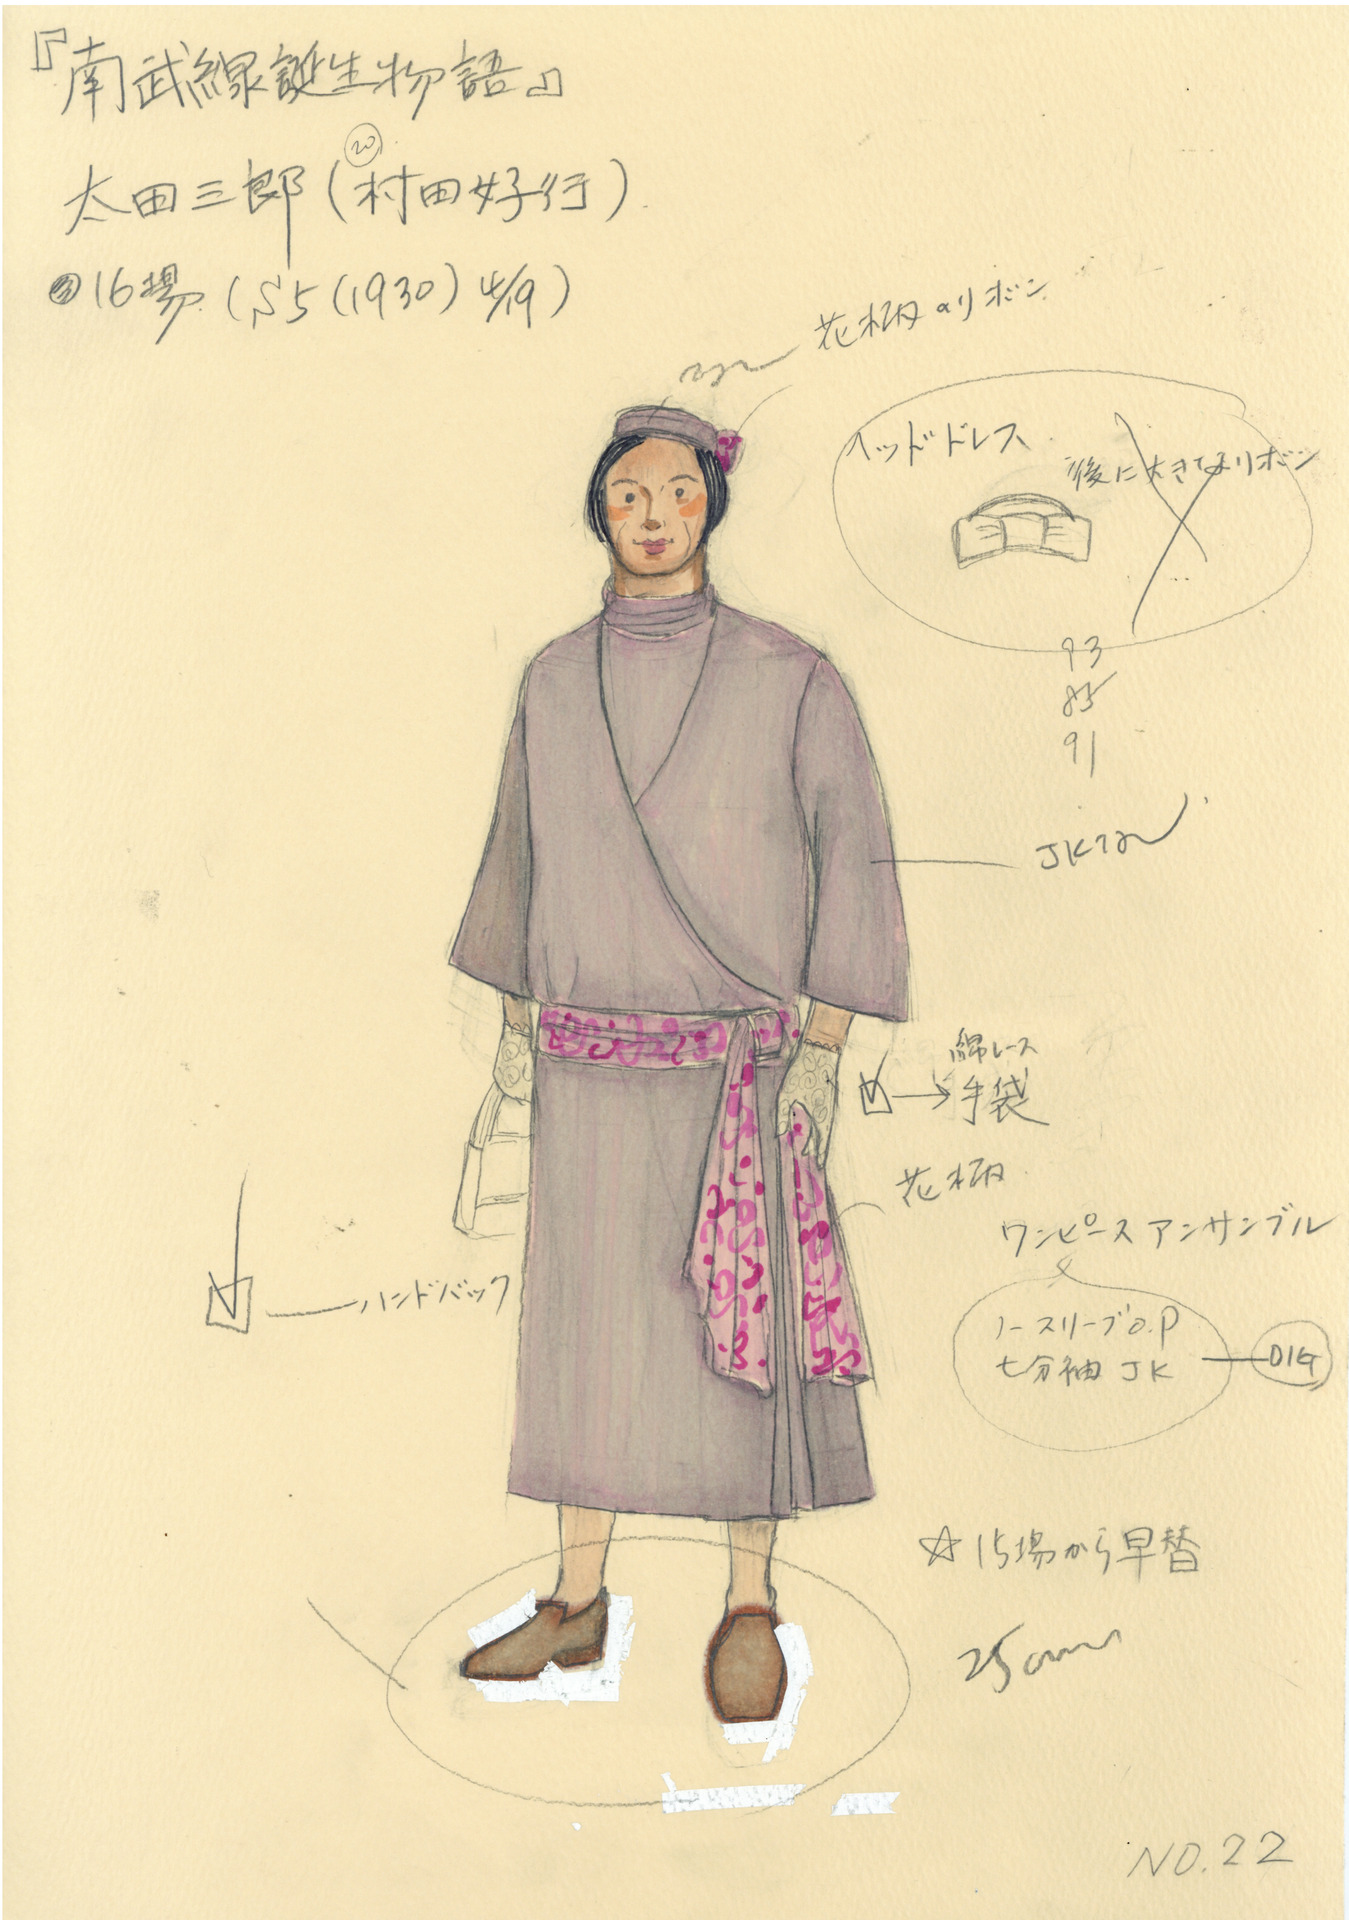 『南武線誕生物語』
20
太田三郎(村田好行)
③16場(S5(1930)4/19)
花柄のリボン
ヘッドドレス
後に大きなリボン
93
85
91
JK
綿レース
手袋
花柄
ワンピースアンサンブル
ハンドバック
ノースリーブO.P
七分袖 JK
☆15場から早替
25cm
NO.22